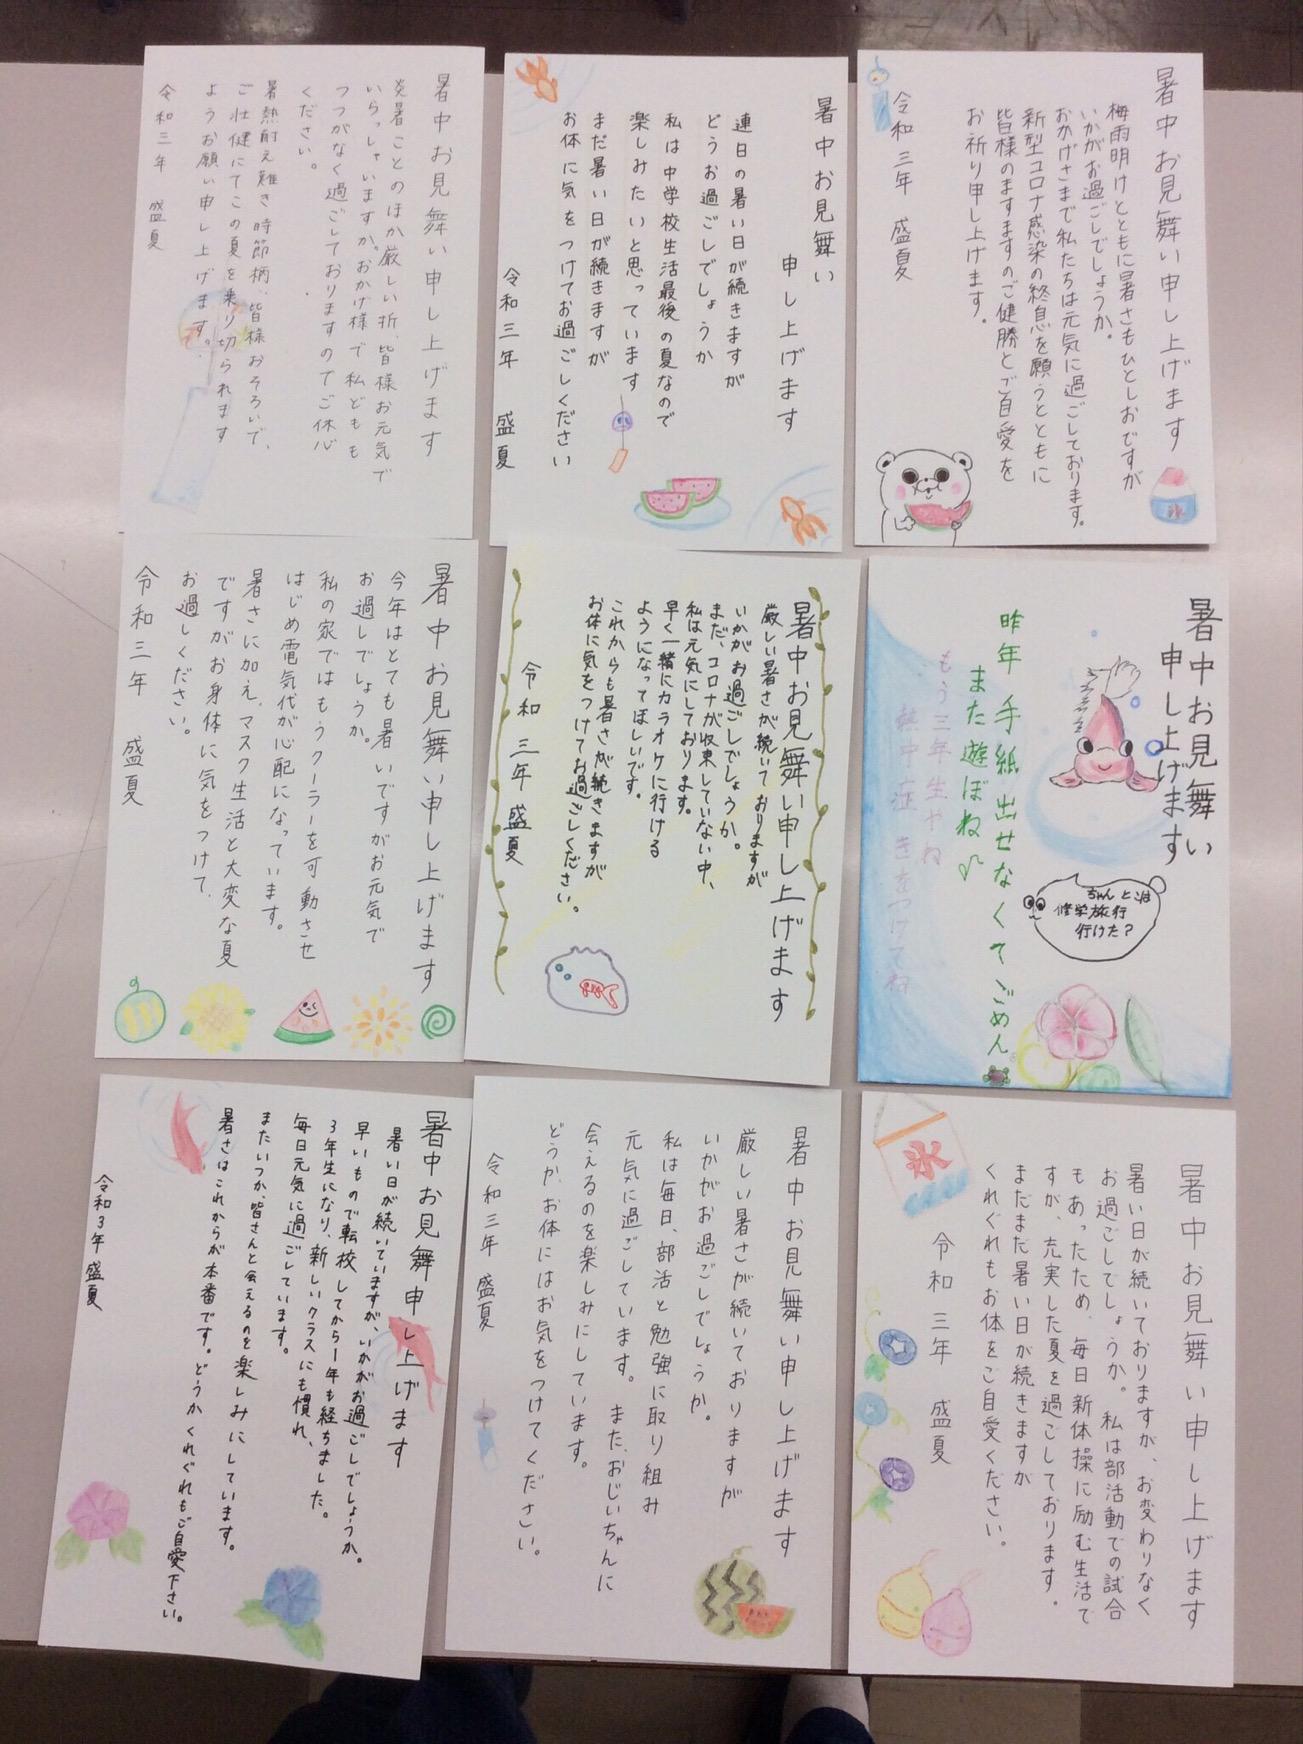 暑中お見舞い申し上げます
梅雨明けとともに暑さもひとしおですが
いかがお過ごしでしょうか。
おかげさまで私たちは元気に過ごしております。
新型コロナ感染の終息を願うとともに
皆様のますますのご健勝とご自愛を
お祈り申し上げます。
令和三年 盛夏
氷
暑中お見舞い
申し上げます
連日の暑い日が続きますが
どうお過ごしでしょうか
私は中学校生活最後の夏なので
楽しみたいと思っています
まだ暑い日が続きますが
お体に気をつけてお過ごしください
令和三年 盛夏
暑中お見舞い申し上げます
炎暑ことのほか厳しい折、皆様お元気で
いらっしゃいますか。おかげ様で私どもも
つつがなく過ごしておりますのでご休心
ください。
暑熱耐え難き時節柄、皆様おそろいで、
ご壮健にてこの夏を乗り切られます
ようお願い申し上げます。
令和三年 盛夏
暑中お見舞い
申し上げます
昨年 手紙出せなくてごめん。
また遊ぼね♪
もう三年生やね
熱中症 きをつけてね
ちゃんとこは
修学旅行
行けた?
暑中お見舞い申し上げます
厳しい暑さが続いておりますが
いかがお過ごしでしょうか。
まだ、コロナが収束していない中、
私は元気にしております。
早く一緒にカラオケに行ける
ようになってほしいです。
これからも暑さが続きますが
お体に気をつけてお過ごしください。
令和 三年 盛夏
暑中お見舞い申し上げます
今年はとても暑いですがお元気で
お過しでしょうか。
私の家ではもうクーラーを可動させ
はじめ電気代が心配になっています。
暑さに加え、マスク生活と大変な夏
ですがお身体に気をつけて、
お過しください。
令和三年 盛夏
氷
暑中お見舞い申し上げます
暑い日が続いておりますが、お変わりなく
お過ごしでしょうか。私は部活動での試合
もあったため、毎日新体操に励む生活で
すが、充実した夏を過ごしております。
まだまだ暑い日が続きますが
くれぐれもお体をご自愛ください。
令和三年 盛夏
暑中お見舞い申し上げます
厳しい暑さが続いておりますが
いかがお過ごしでしょうか。
私は毎日、部活と勉強に取り組み
元気に過ごしています。また、おじいちゃんに
会えるのを楽しみにしています。
どうか、お体にはお気をつけてください。
令和三年 盛夏
暑中お見舞申し上げます
暑い日が続いていますが、いかがお過ごしでしょうか。
早いもので転校してから一年も経ちました。
3年生になり、新しいクラスにも慣れ、
毎日元気に過ごしています。
またいつか、皆さんと会えるのを楽しみにしています。
暑さはこれからが本番です。どうかくれぐれもご自愛下さい。
令和3年盛夏